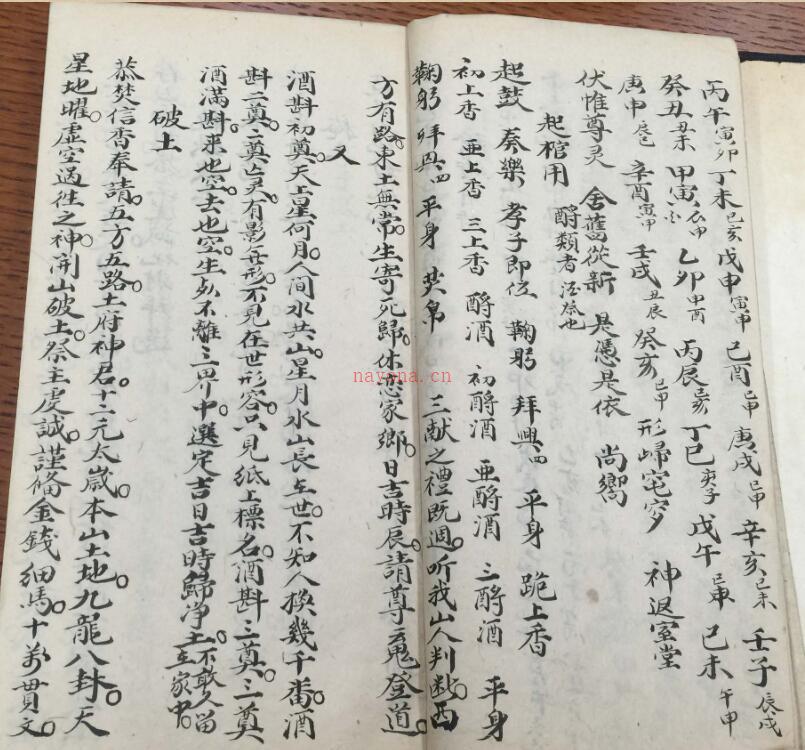 丙午寅卯 丁未巳亥 戊申寅申 己酉 庚戌 辛亥巳未 壬子辰戌
癸丑丑未 甲寅 乙卯申酉 丙辰 丁巳庚子 戊午 己未午申
庚申 辛酉寅申 壬戌丑辰 癸亥巳申 形歸窀穸 神返室堂
伏惟尊灵 舍舊從新 是憑是依 尚嚮
起棺用 酹類者
起鼓 奏樂 孝子即位 鞠躬 拜興四 平身 跪上香
初上香 亜上香 三上香 酹酒 初酹酒 亜酹酒 三酹酒 平身
鞠躬 拜興四 平身 焚帛 三献之禮既週 听我山人判断 西
方有路 東土無常 生寄死歸 休恋家鄉 日吉時辰 請尊䰟登道
又
酒斟初奠 天上星何月 人间水共山 星月水山長在世 不知人換幾千番 酒
斟二奠 二奠亡灵 有影無形 不見在世形容 只見紙上標名 酒斟三奠 三奠
酒滿斟 来也空 去也空 生死不離三界中 選定吉日吉時歸净土 不敢久留在家中
破土
恭焚信香奉請 五方五路 土府神君 十二元太歲 本山土地 九龍八卦 天
星地曜 虚空過往之神 開山破土 祭主虔誠 謹備金錢細馬 十萬貫文
nayona.cn